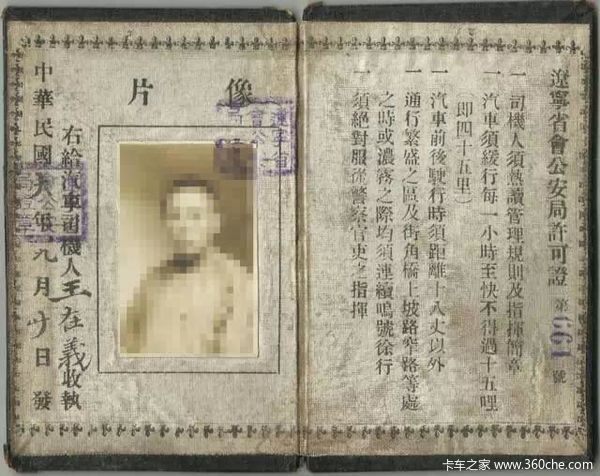 遼寧省會公安局許可證 第 號
一 司機人須熟讀管理規則及指揮簡章
一 汽車須緩行每一小時至快不得過十五哩
(即四十五里)
一 汽車前後駛行時須距離十八丈以外
一 通行繁盛之區及街角橋上坡路窄路等處
之時或濃霧之際均須連續鳴號徐行
一 須絕對服從警察官吏之指揮
像片
右給汽車司機人王在義收執
中華民國 年九月十日發
卡车之家 www.360che.com